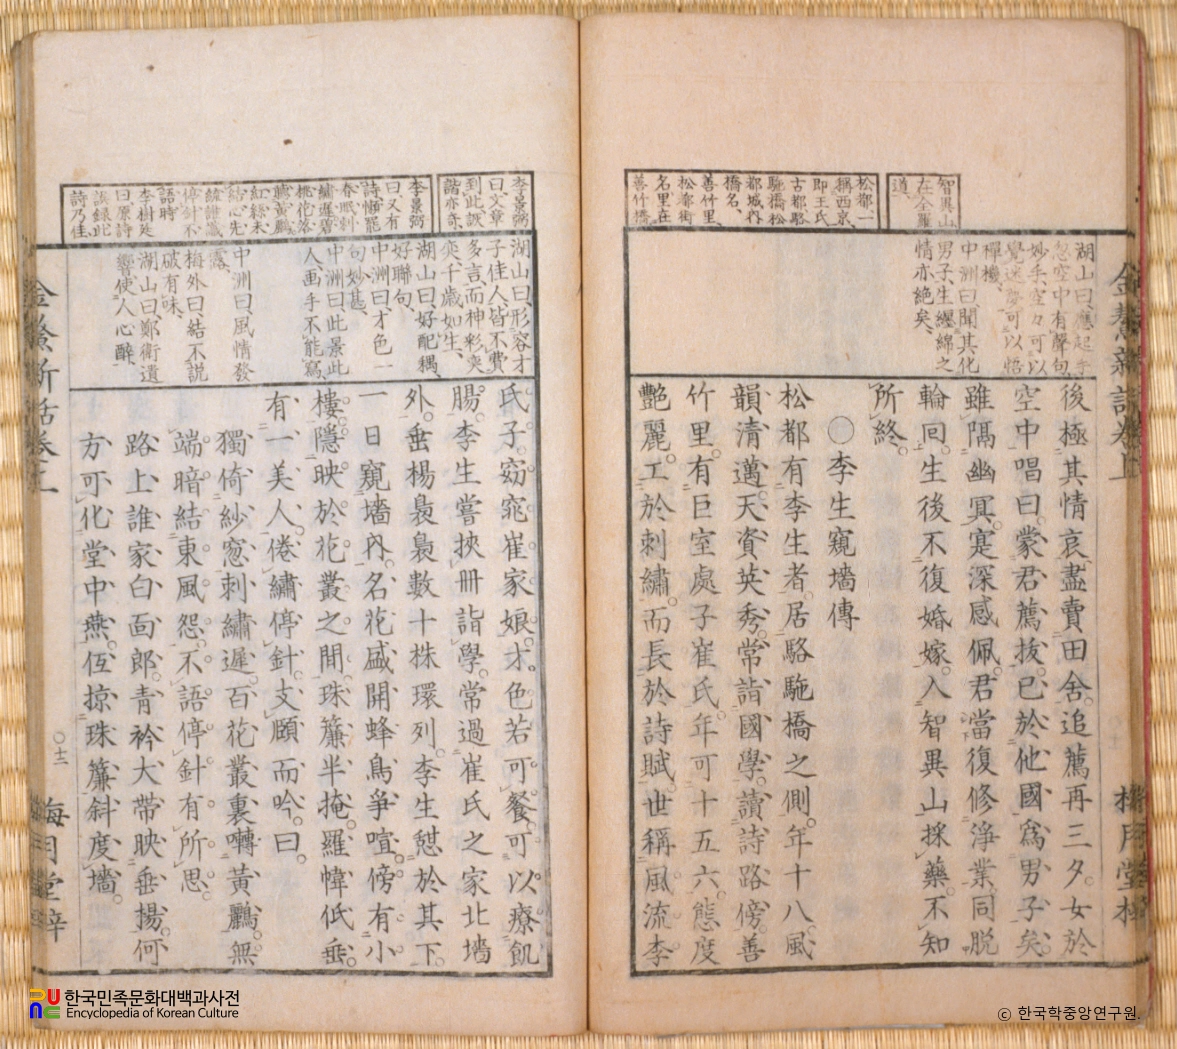 智異山
在全羅
道、
松都一
稱西京、
即王氏
古都駱
駝橋松
都城内
橋名、
善竹里、
松都街
名里在
善竹橋
湖山曰、應起手
忽空中有聲句、
妙手、空々可以
覺迷夢可以悟
禪機、
中洲曰、聞其化
男子生纏綿之
情亦絶矣、
後極其情哀、盡賣田舍。追薦再三夕。女於
空中唱曰。蒙君薦拔。已於他國爲男子矣。
雖隔幽冥。寔深感佩。君當復修淨業。同脱
輪回。生後不復婚嫁。入智異山採藥。不知
所終。
○李生窺墻傳
松都有李生者。居駱駝橋之側。年十八。風
韻清邁。天資英秀。常詣國學。讀詩路傍。善
竹里。有巨室處子崔氏。年可十五六。態度
艶麗。工於刺繡。而長於詩賦。世稱。風流李
金鰲新話卷上
梅月堂梓
李景弼
曰、文章
到此詼
諧亦奇、
李景弼
曰又有
詩慵罷
春眠剩
繡遲碧
桃花落
聽黄鸝
紅絲未
結心先
語時
李樹廷
曰、原詩
誤録此
詩乃佳、
湖山曰、形容才
子佳人、皆不費
多言、而神彩奕
奕千歳如生、
湖山曰、好配耦、
好聯句、
中洲曰、才色一
句妙甚、
中洲曰、此景此
人畫手不能寫、
中洲曰、風情發
露、
梅外曰、結不説
破有味、
湖山曰、鄭衛遺
響使人心醉、
氏子。窈窕崔家娘。才色若可餐。可以療飢
腸。李生嘗挾冊詣學。常過崔氏之家北墻
外。垂楊裊裊數十株環列。李生憩於其下。
一日窺墻内。名花盛開蜂鳥爭喧。傍有小
樓。隱映於花叢之間。珠簾半掩。羅幃低垂。
有一美人。倦繡停針。支頤而吟。曰。
獨倚紗窓刺繡遲。百花叢裏囀黄鸝。無
端暗結東風怨。不語停針有所思。
路上誰家白面郎。青衿大帶映垂揚。何
方可化堂中燕。低掠珠簾斜度墻。
金鰲新話卷上
○十二
梅月堂梓
한국민족문화대백과사전
Encyclopedia of Korean Culture
© 한국학중앙연구원.